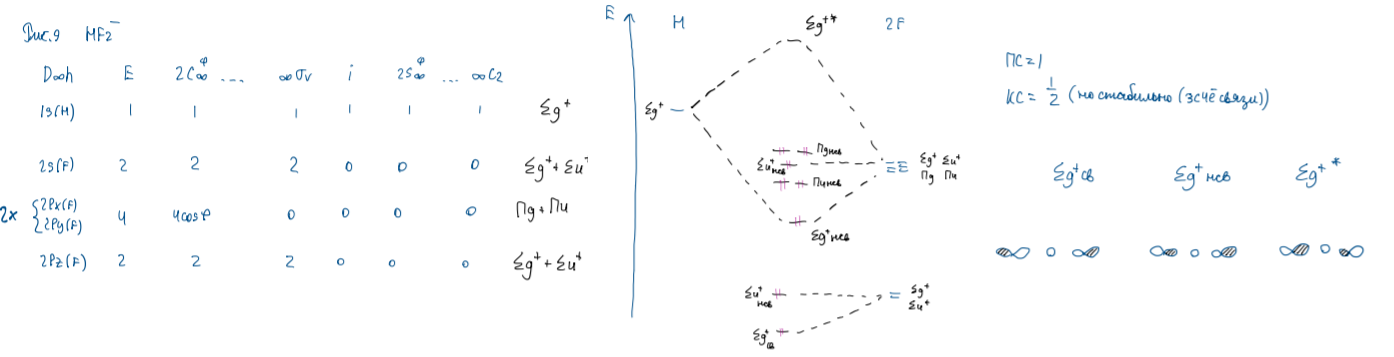 Рис.9 HF2⁻
D∞h E 2C∞^φ .... ∞σv i 2S∞^φ ... ∞C2
1s(H) 1 1 1 1 1 1 Σg⁺
2s(F) 2 2 2 0 0 0 Σg⁺+Σu⁺
2x { 2Px(F) 2Py(F) 4 4cosφ 0 0 0 0 Πg+Πu
2Pz(F) 2 2 2 0 0 0 Σg⁺+Σu⁺
E H Σg⁺* 2F
Σg⁺
Πg нсв
Σu⁺ нсв
Πu нсв
Σg⁺ Σu⁺
Πg Πu
Σg⁺ нсв
Σu⁺ нсв
Σg⁺
Σg⁺
Σu⁺
ПС=1
КС= 1/2 (но стабильно (3сч связи))
Σg⁺св Σg⁺нсв Σg⁺*